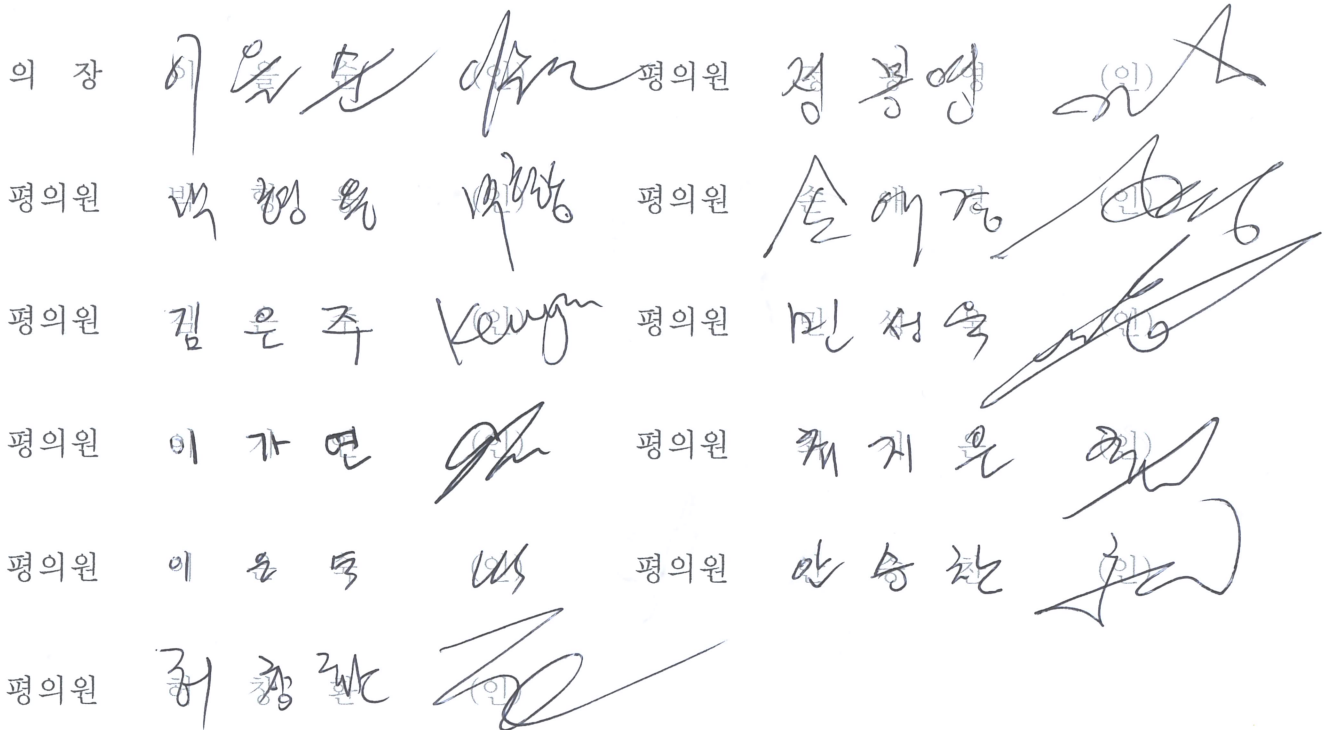 의 장 이 을 순 (인) 평의원 정 봉 영 (인)
평의원 백 형 용 (인) 평의원 손 애 경 (인)
평의원 김 은 주 (인) 평의원 민 성 욱 (인)
평의원 이 가 연 (인) 평의원 지 은 (인)
평의원 이 은 (인) 평의원 안 승 찬 (인)
평의원 허 창 환 (인)